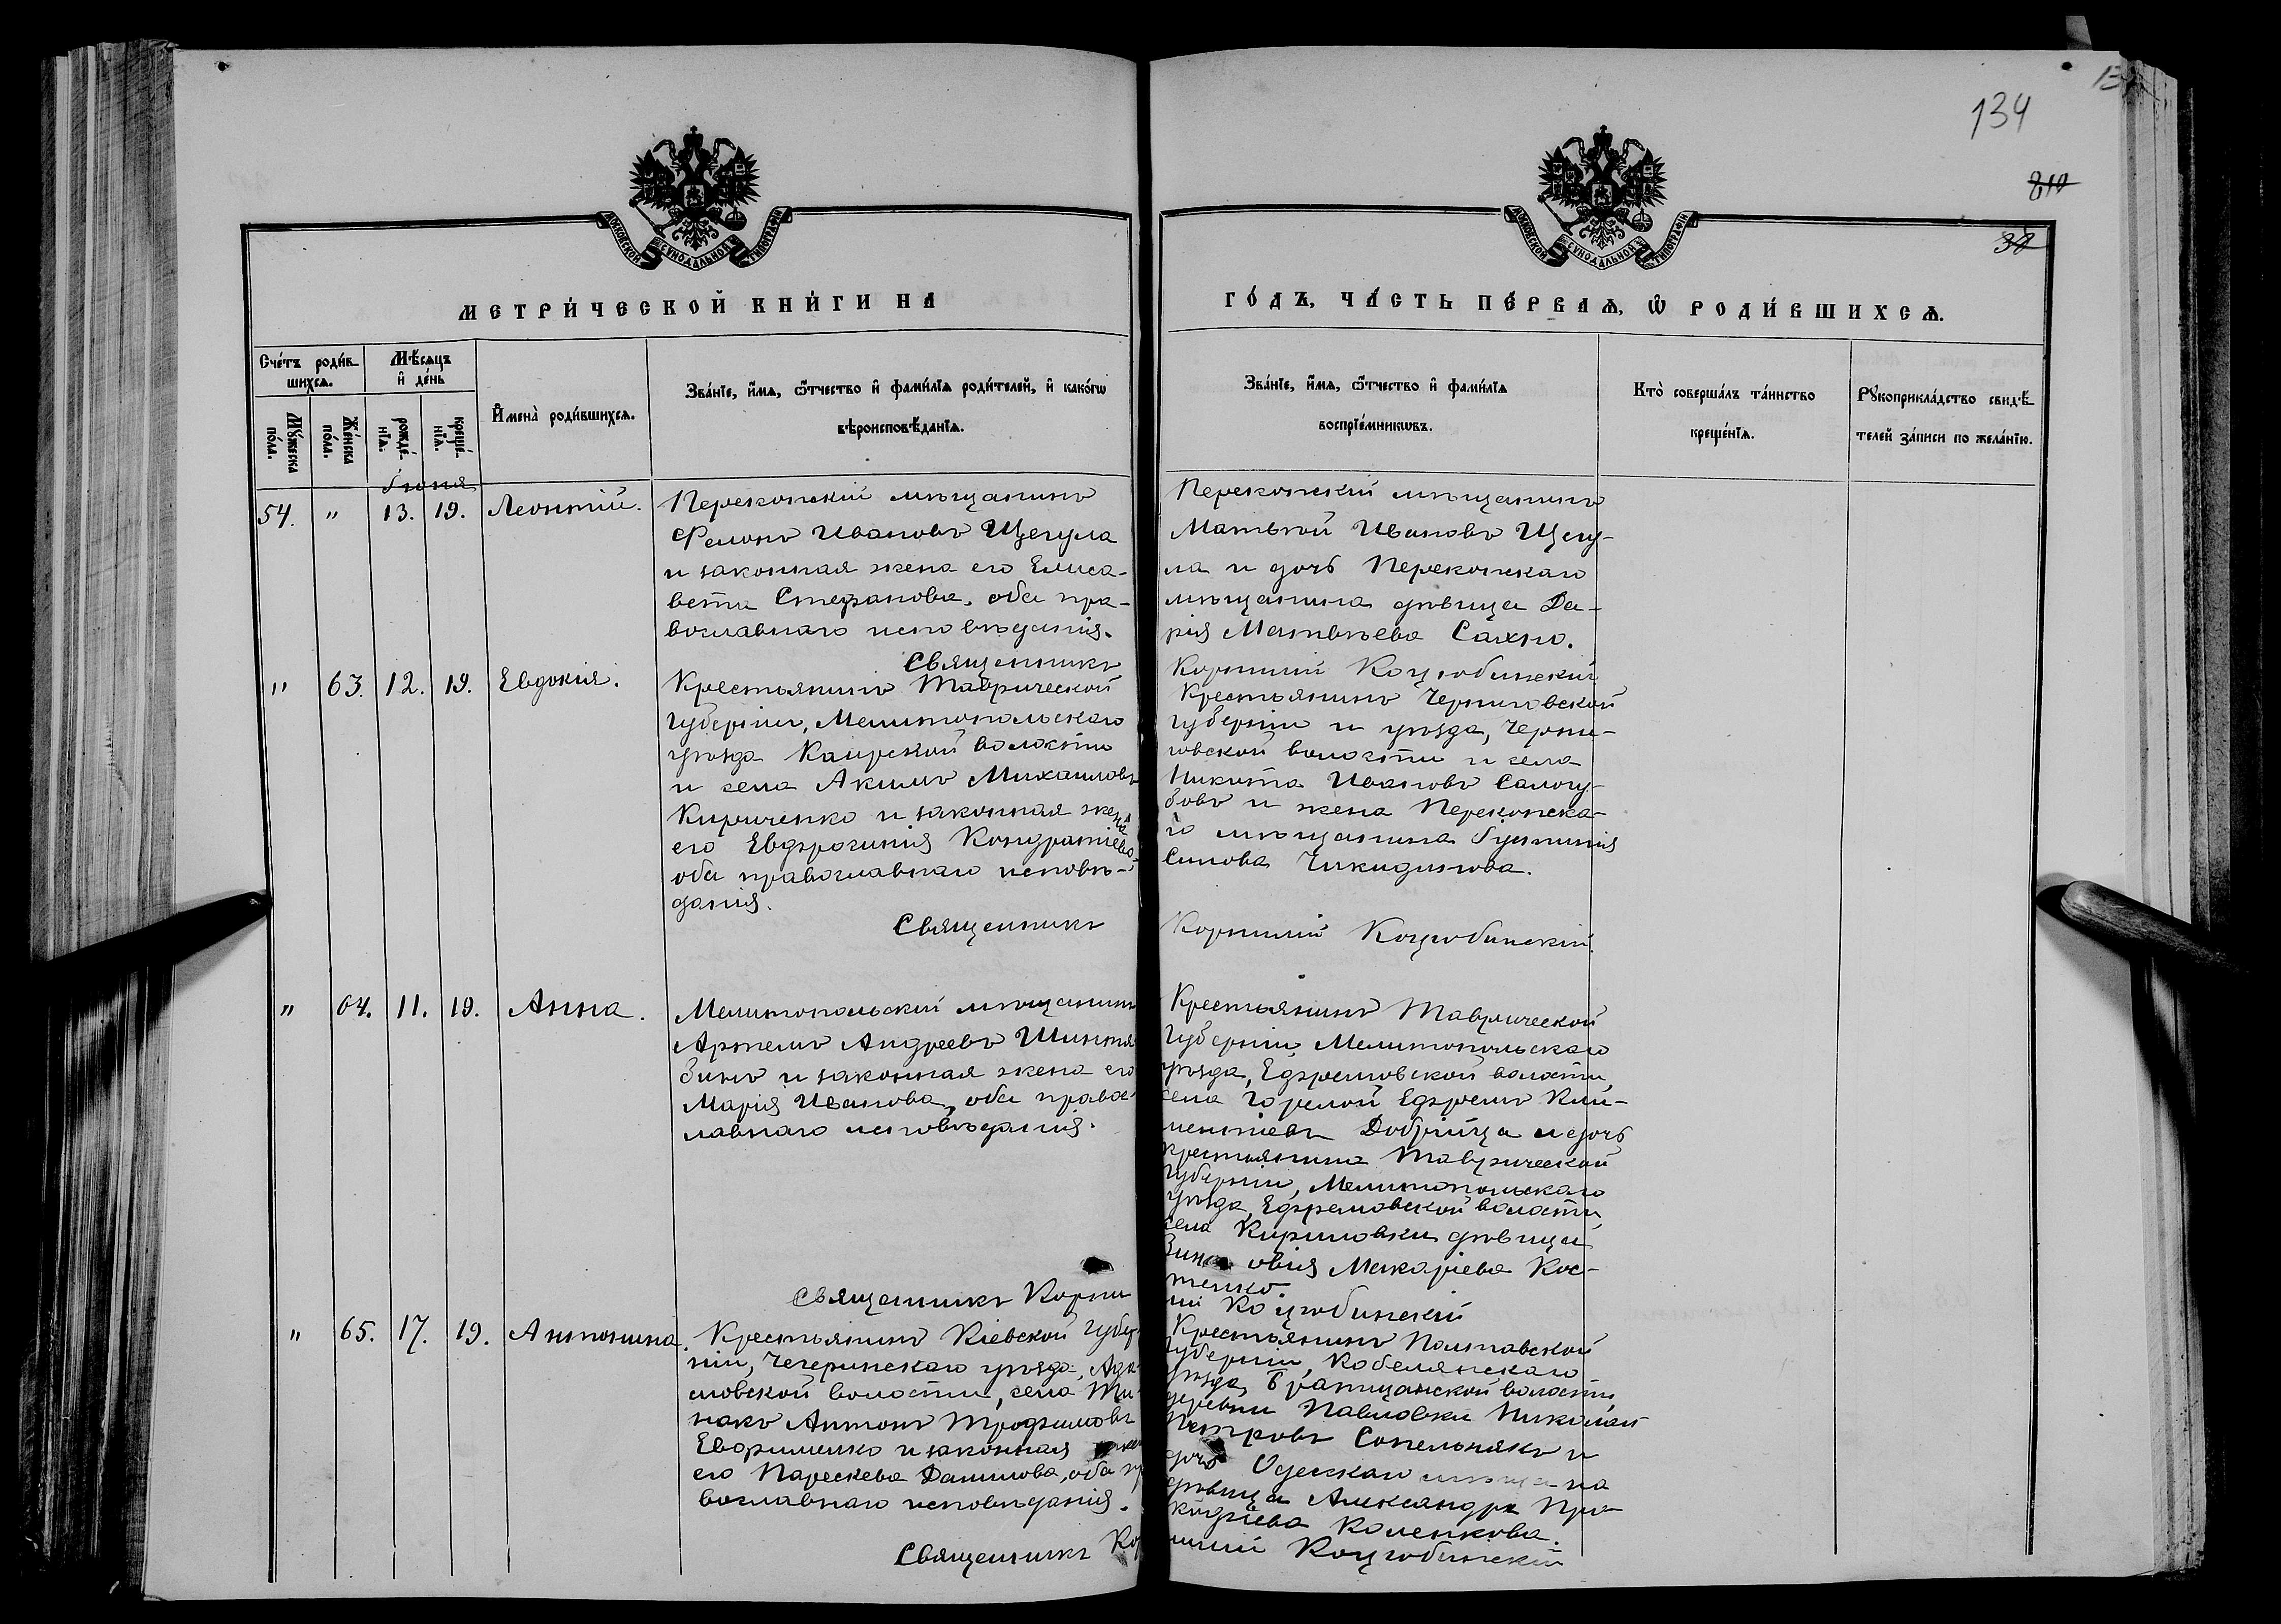 134
810
38
МОСКОВСКОЙ СѴНОДАЛЬНОЙ ТИПОГРАФІИ
МОСКОВСКОЙ СѴНОДАЛЬНОЙ ТИПОГРАФІИ
МЕТРИ́ЧЕСКОЙ КНИ́ГИ НА
ГО́ДЪ, ЧА́СТЬ ПЕ́РВАѦ, Ѡ РОДИ́ВШИХСѦ.
Сче́тъ роди́в-
шихсѧ.
Мѣ́сѧцъ
и҆ де́нь
Мꙋ́жеска
по́ла.
Же́нска
по́ла.
рожде́-
нїѧ.
креще́-
нїѧ.
И҆мена̀ роди́вшихсѧ.
Зва́нїе, и҆́мѧ, ѻ҆́тчество и҆ фами́лїѧ роди́телей, и҆ како́гѡ
вѣроисповѣ́данїѧ.
Зва́нїе, и҆́мѧ, ѻ҆́тчество и҆ фами́лїѧ
воспрїе́мникѡвъ.
Кто̀ соверша́лъ та́инство
креще́нїѧ.
Рꙋкоприкла́дство свидѣ́-
телей за́писи по жела́нїю.
Іюня
54. " 13. 19. Леонтій.
Перекопскій мѣщанинъ
Филонъ Ивановъ Щегула
и законная жена его Елиса-
вета Стефанова, оба пра-
вославнаго исповѣданія.
Священникъ
Перекопскій мѣщанинъ
Матвѣй Ивановъ Щегу-
ла и дочь Перекопскаго
мѣщанина дѣвица Да-
рія Матвѣева Сахно.
Корнилій Коцюбинскій
" 63. 12. 19. Евдокія.
Крестьянинъ Таврической
губерніи, Мелитопольскаго
уѣзда Каирской волости
и села Акимъ Михаиловъ
Кириченко и законная жена
его Евфросинія Кондратіева,
оба православнаго исповѣ-
данія.
Священникъ
Крестьянинъ Черниговской
губерніи и уѣзда, Черни-
говской волости и села
Никита Ивановъ Самогу-
бовъ и жена Перекопска-
го мѣщанина Іустинія
Симова Чикидинова.
Корнилій Коцюбинскій.
" 64. 11. 19. Анна.
Мелитопольскій мѣщанинъ
Артемъ Андреевъ Шинка
зинъ и законная жена его
Марія Иванова, оба правос
лавнаго исповѣданія.
Священникъ Корни
Крестьянинъ Таврической
губерніи, Мелитопольскаго
уѣзда, Ефремовской волости,
села Горелой Ефремъ Кли-
ментіевъ Добрица и дочь
крестьянина Таврической
губерніи, Мелитопольскаго
уѣзда, Ефремовской волости,
села Кириловки дѣвица
Зиновія Макаріева Кос-
тенко.
лій Коцюбинскій
" 65. 17. 19. Антонина.
Крестьянинъ Кіевской губер
ніи, Чегеринскаго уѣзда, Ада
мовской волости, села Ти
накъ Антонъ Трофимовъ
Евфименко и законная жен
его Параскева Данилова, оба пр
вославнаго исповѣданія.
Священникъ Кор
Крестьянинъ Полтавской
губерніи, Кобелянскаго
уѣзда, Бращанской волости,
деревни Павловки Николай
Петровъ Сопельнякъ и
дочь Одесскаго мѣщанина
дѣвица Александра Про-
кофіева Коленкова.
нилій Коцюбинскій